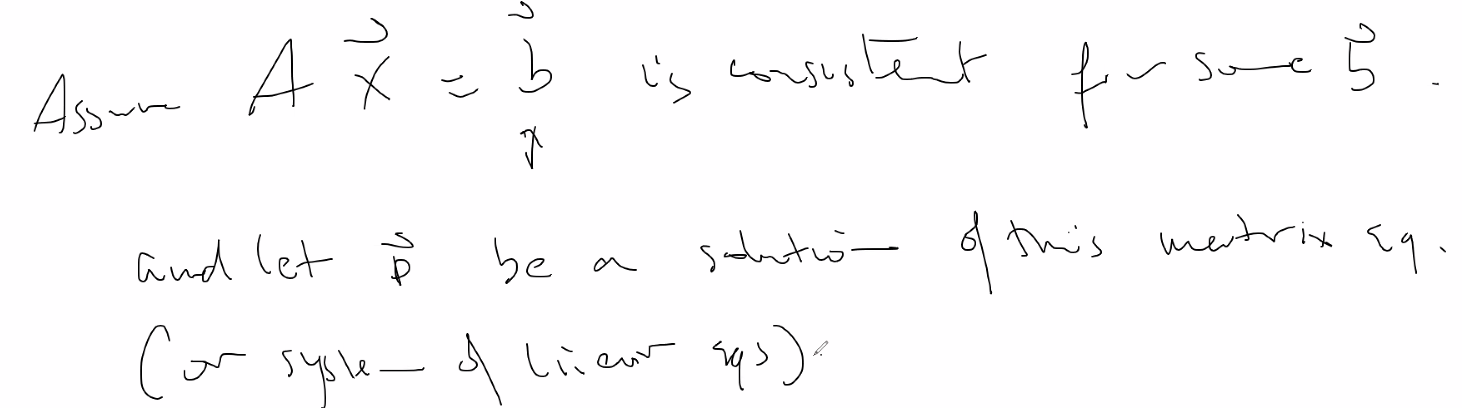 Assume A x⃗ = b⃗ is consistent for some b⃗.
and let p⃗ be a solution of this matrix eq.
(or system of linear eqs)